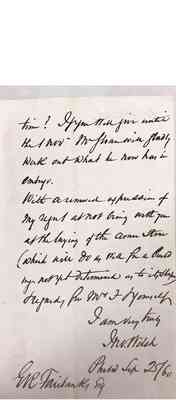 time? If you will give until
the 1 Nov Mr Sloan will gladly
work out what he now has in
embryo.
With a renewed expression of
my regret at not being with you
at the laying of the corner stone
(which will do as well for a build
ing not yet determined as to its
Regards for Mrs F & yourself
I am very truly
Jno Welsh
Philad Sep 25/60
G R Fairbanks, Esq